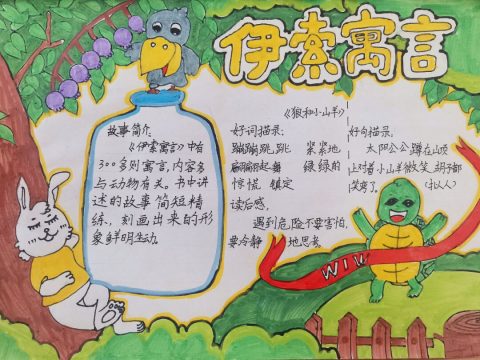 伊索寓言
故事简介:
《伊索寓言》中有
300多则寓言,内容多
与动物有关。书中讲
述的故事简短精
练,刻画出来的形
象鲜明生动。
《狼和小山羊》
好词摘录:
蹦蹦跳跳 紧紧地
翩翩起舞 绿绿的
惊慌 镇定
读后感:
遇到危险不要害怕,
要冷静 地思考
好句摘录:
太阳公公蹲在山顶
上对着小山羊微笑,胡子都
笑弯了。(拟人)
WIW